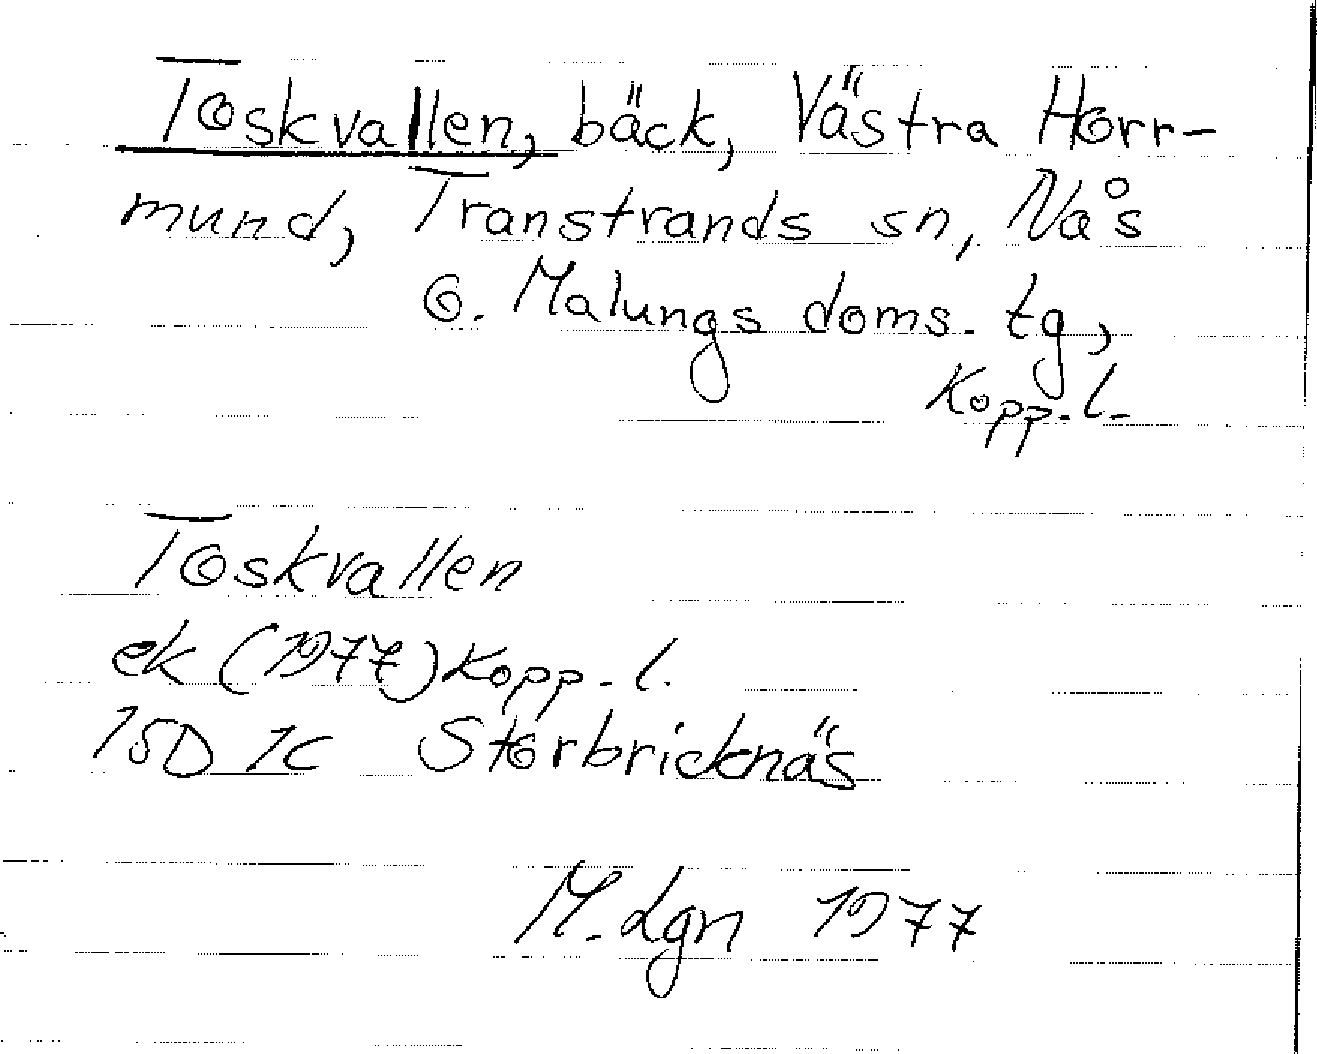 Toskvallen, bäck, Västra Horr-
mund, Transtrands sn, Nås
o. Malungs doms. tg,
Kopp. l.
Toskvallen
ek (1977) Kopp. l.
15D 1c Storbricknäs
M. Lgn 1977